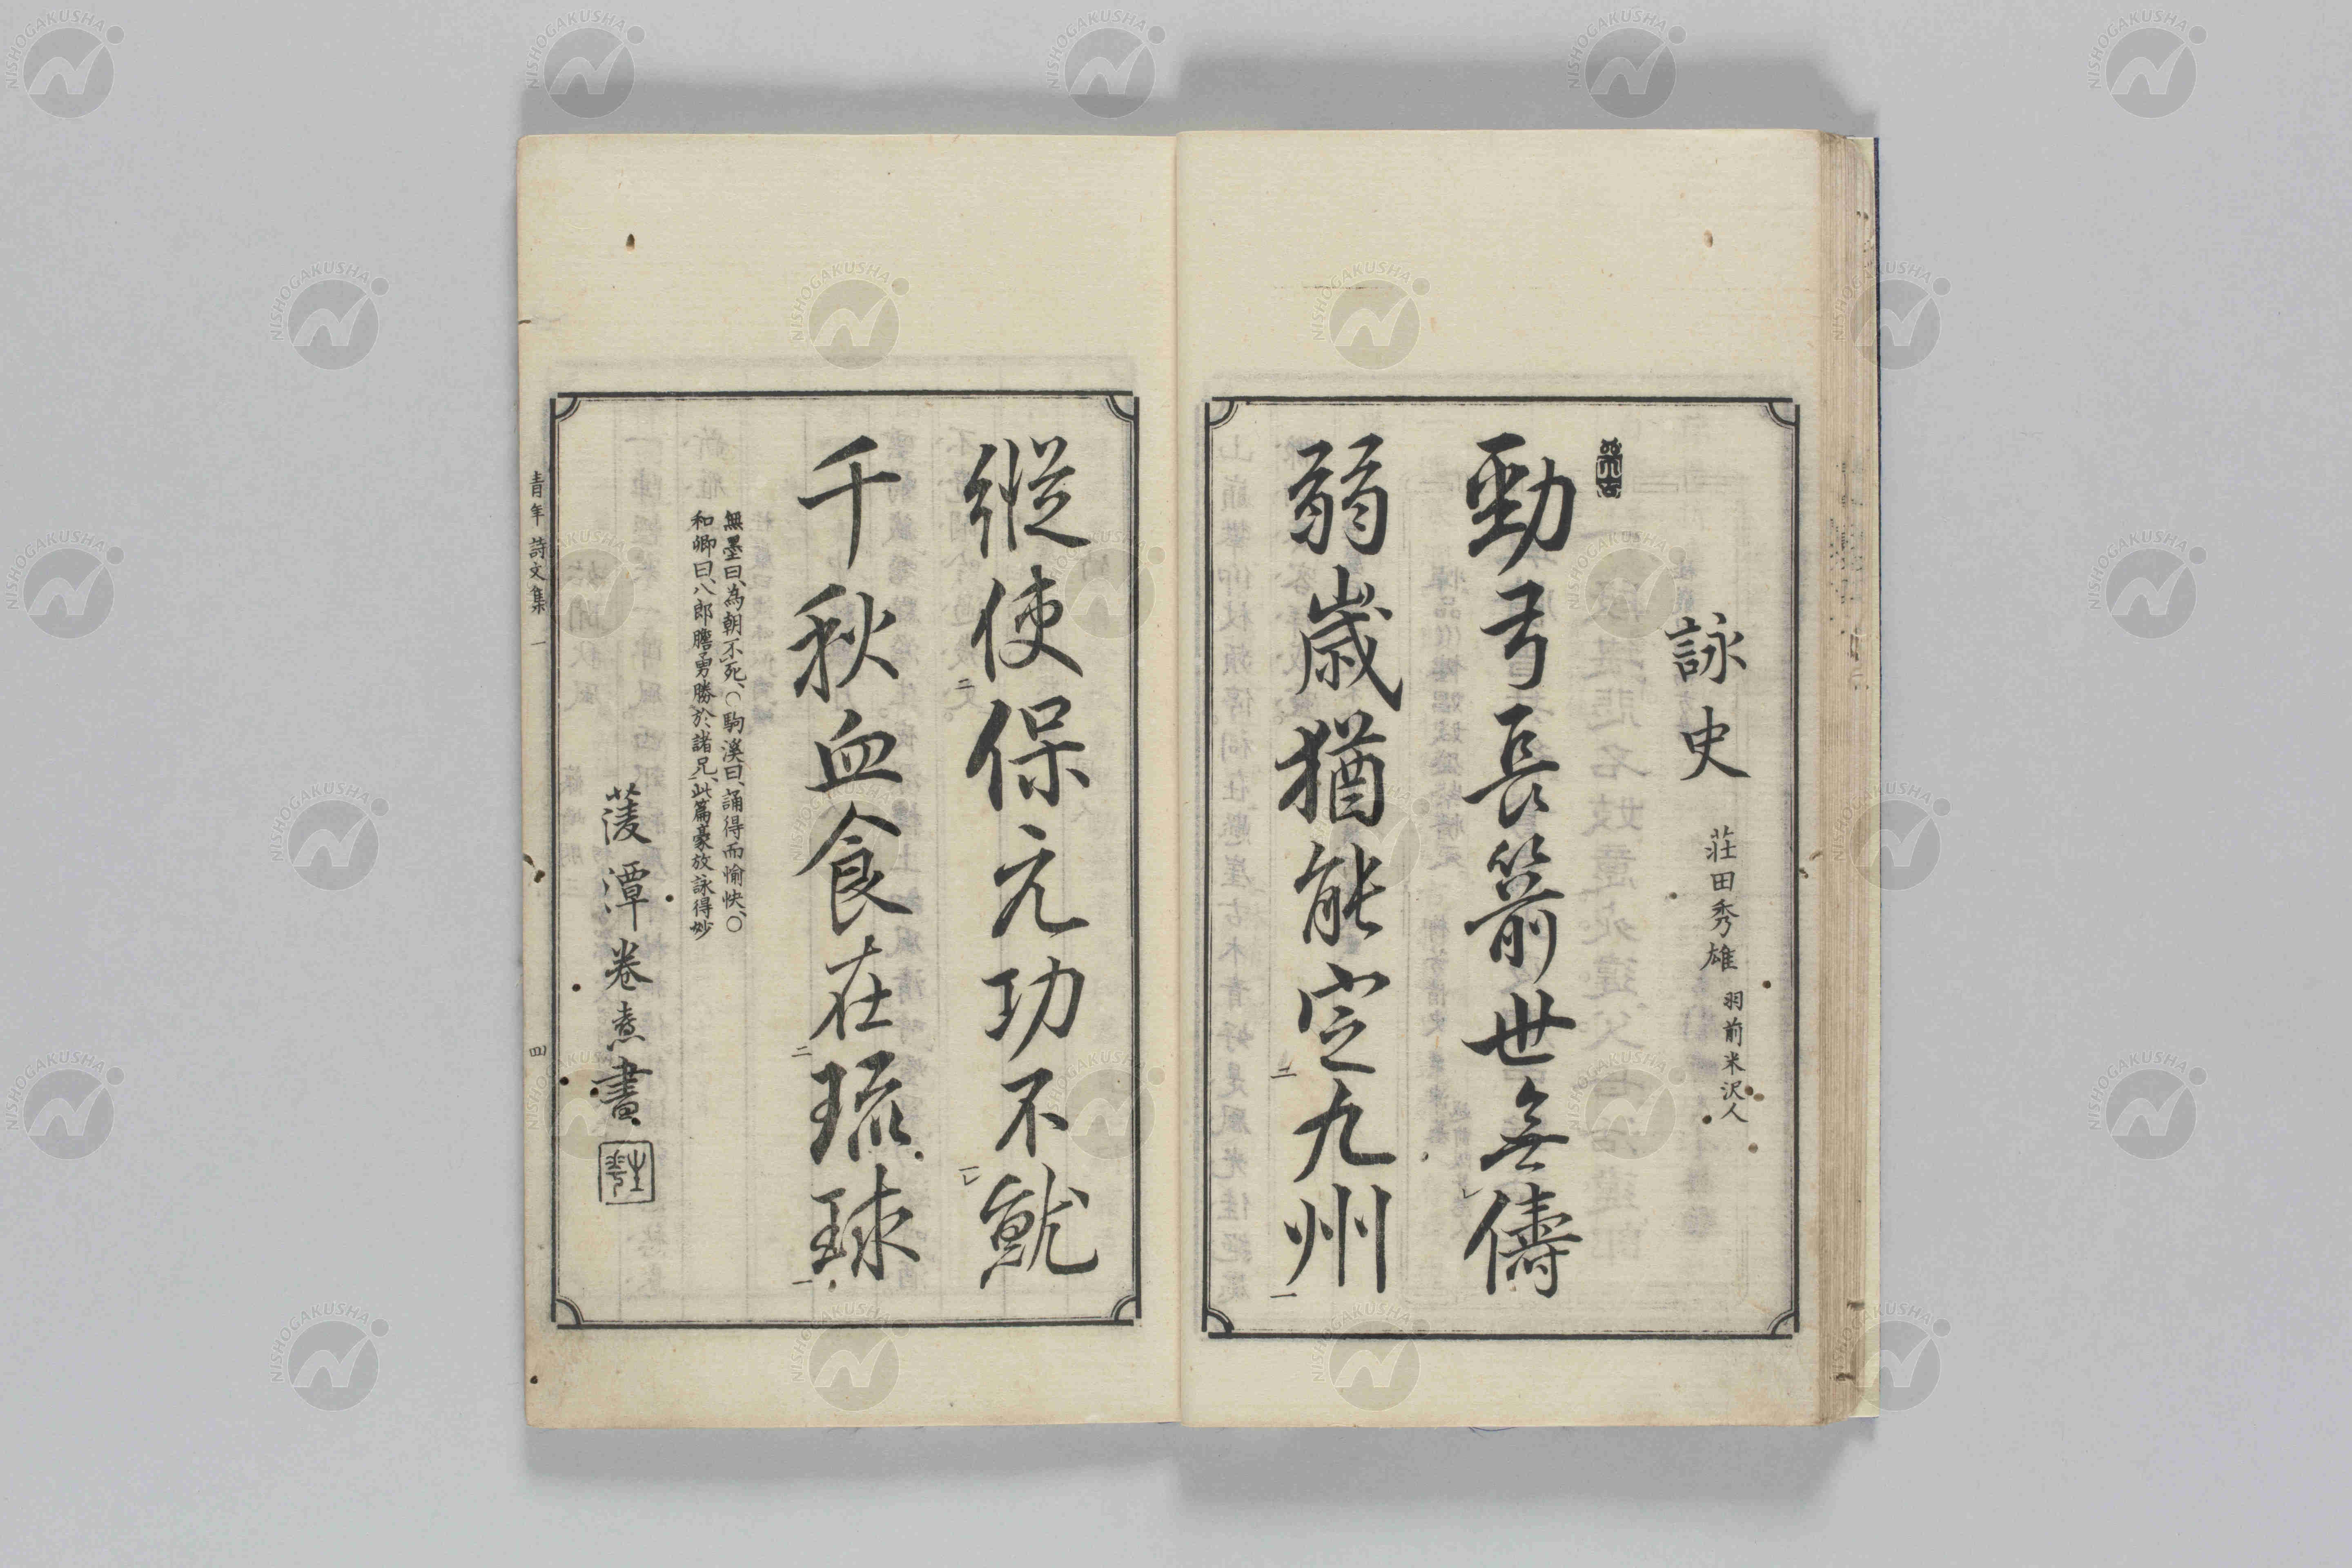 詠史 荘田秀雄 羽前米沢人
勁弓長箭世無儔
弱歳猶能定二九州一
縦使保元功不就
千秋血食在二琉球一
無墨曰、為朝不死、〇駒溪曰、誦得而愉快、〇
和卿曰、八郎膽勇勝於諸兄、此篇豪放詠得妙
菱潭巻書
青年詩文集 一 四
NISHOGAKUSHA